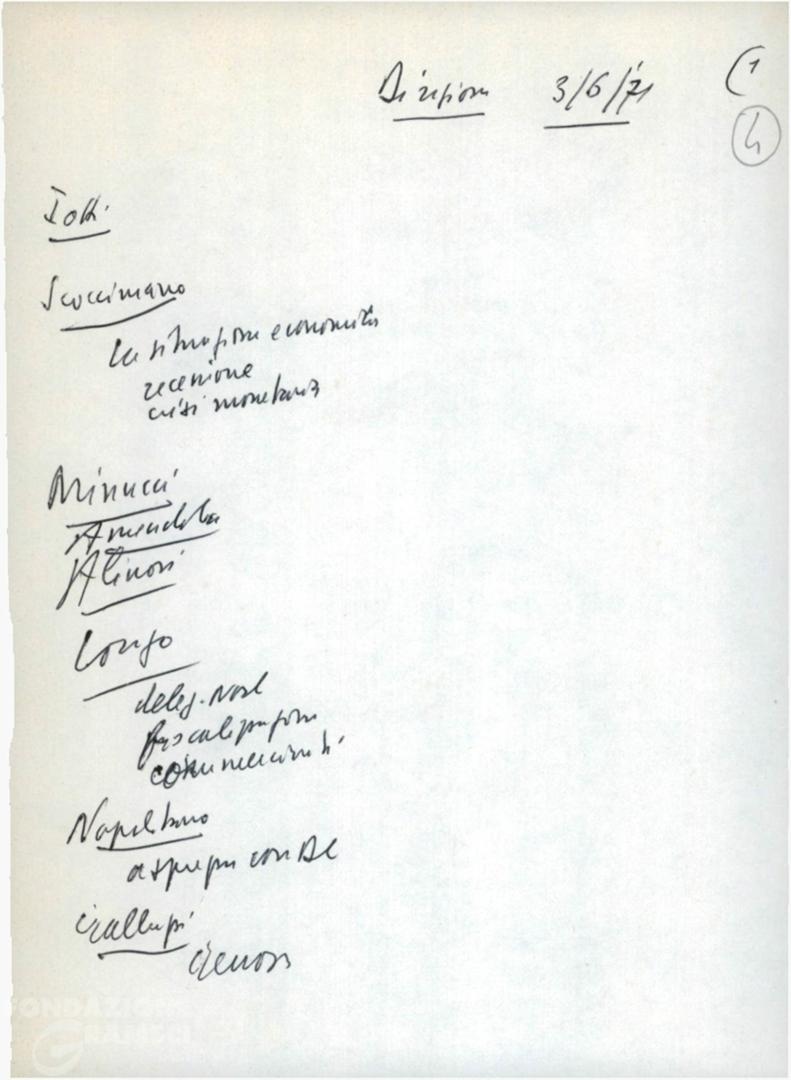 Direzione 3/6/71 (1
4
Iotti
Scoccimarro
la situazione economica
recessione
crisi monetaria
Minucci
Amendola
Alinovi
Longo
deleg. naz
fiscalizzazione
commercianti
Napolitano
con DC
Galluzzi
Genova
FONDAZIONE
GRAMSCI